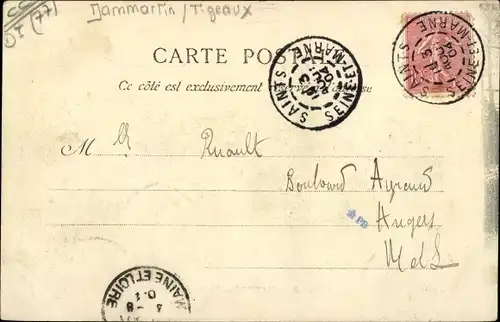 (77)
Dammartin / Tigeaux
CARTE POSTALE
Ce côté est exclusivement réservé à l'adresse
SAINTS
SEINE-ET-MARNE
04
SAINTS
SEINE-ET-MARNE
04
M Ruault
Boulevard Ayraud
Angers
M et L
MAINE ET LOIRE